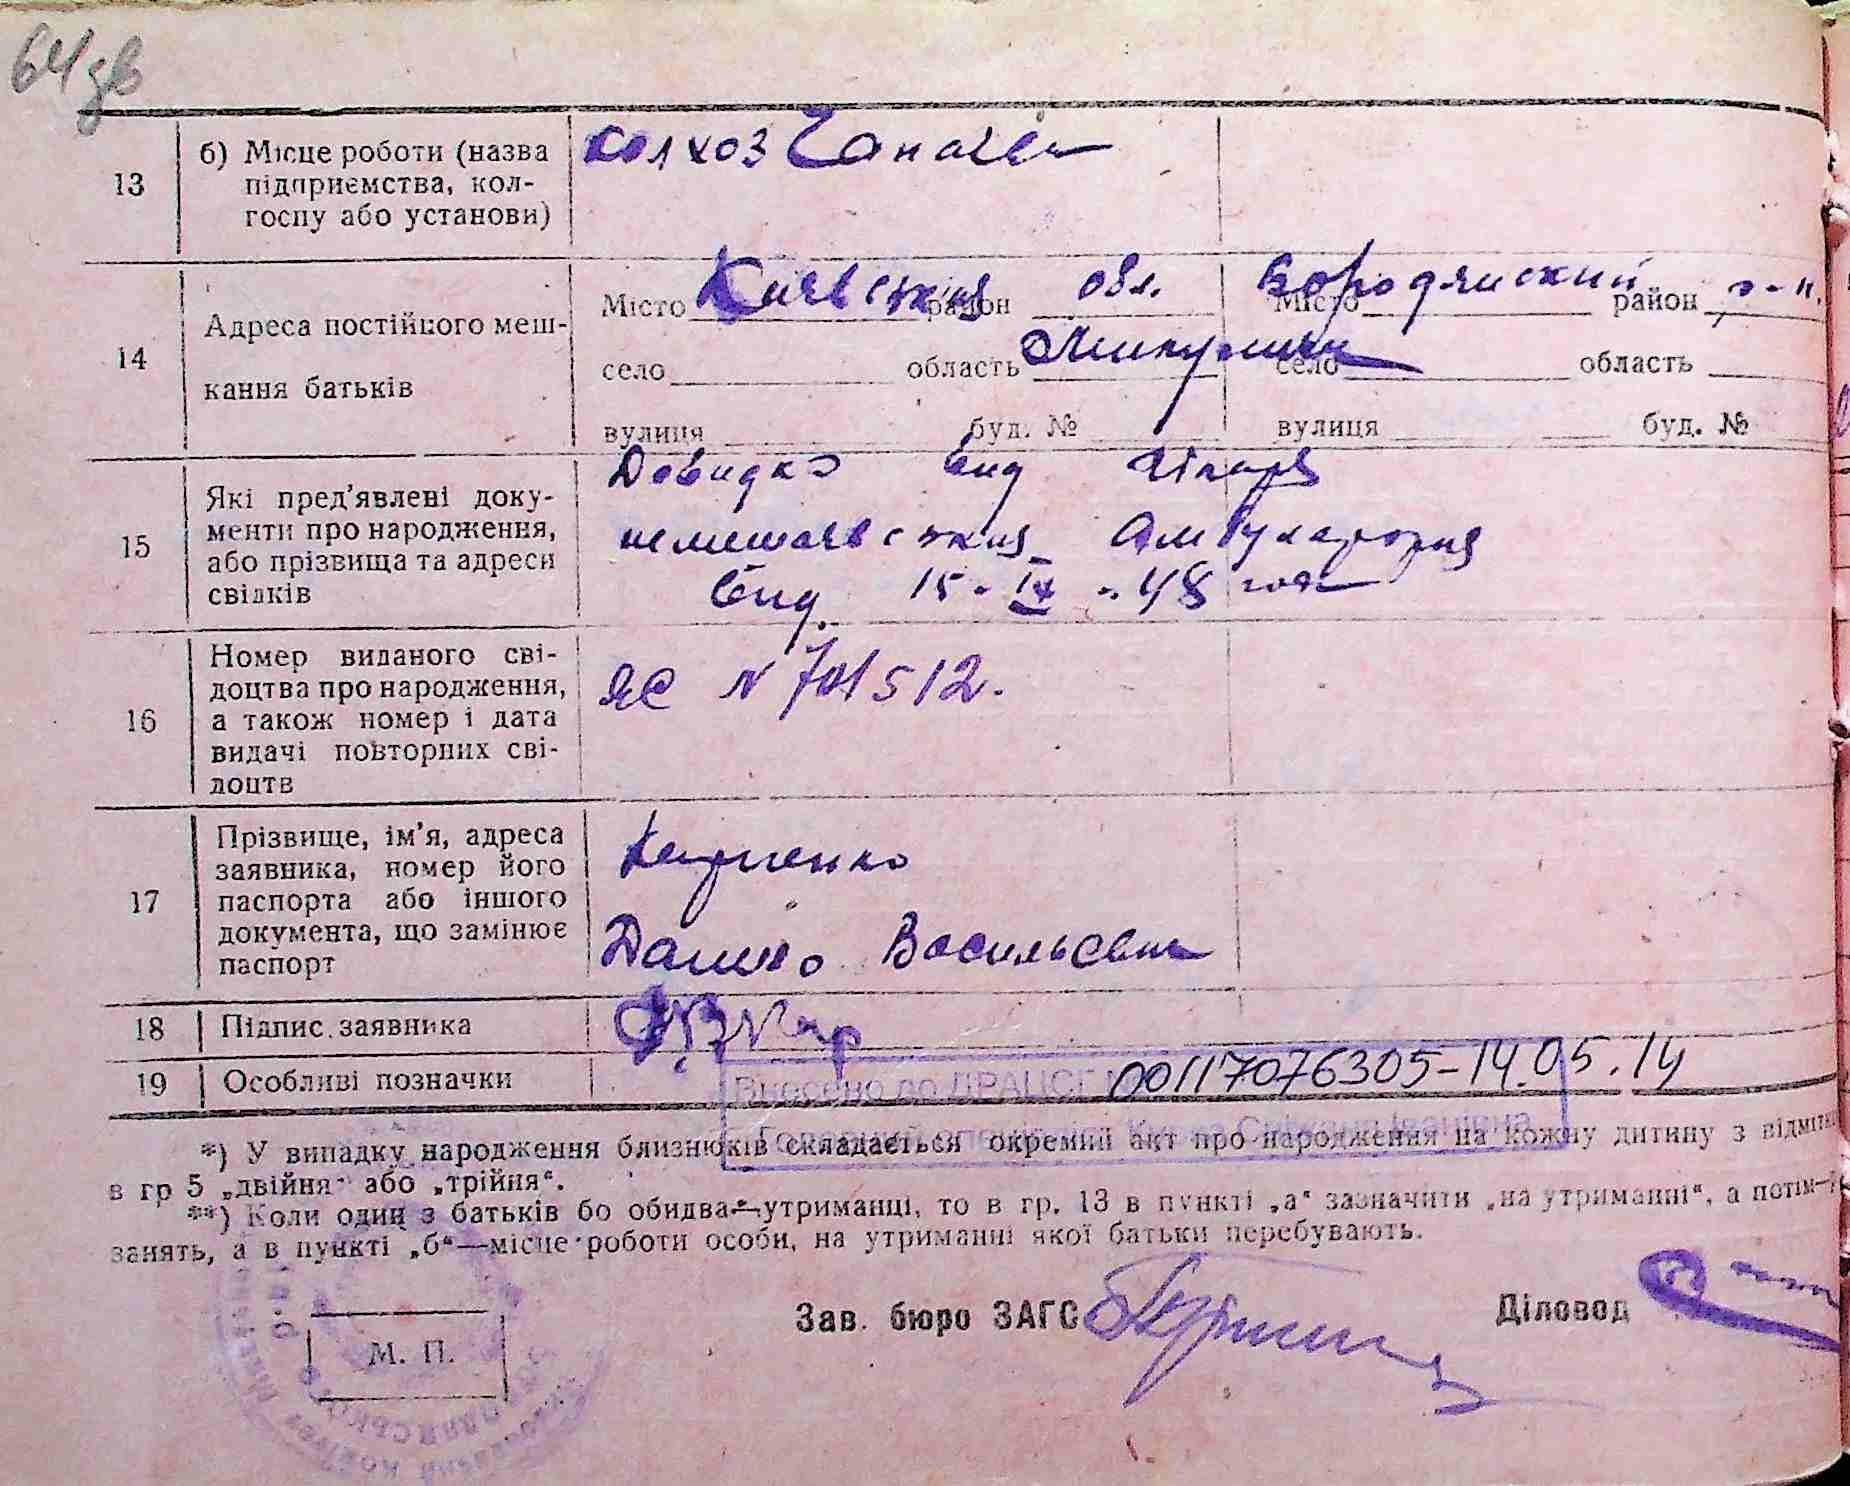 64 зв
13 б) Місце роботи (назва підприємства, колгоспу або установи) колхоз Чапаева
14 Адреса постійного мешкання батьків
Місто Киявская район обл. Місто Бородянский район р-н.
село область Микуличи село область
вулиця буд. № вулиця буд. №
15 Які пред’явлені документи про народження, або прізвища та адреси свідків
Довидка вид лікаря
немешаевская Амбулатория
вид. 15-IX-48 года
16 Номер виданого свідоцтва про народження, а також номер і дата видачі повторних свідоцтв
ЯС N 701512.
17 Прізвище, ім’я, адреса заявника, номер його паспорта або іншого документа, що замінює паспорт
Данило Васильевич
18 Підпис заявника
19 Особливі позначки
Внесено до ДРАЦСГ 00117076305-14.05.14
*) У випадку народження близнюків складається окремий акт про народження на кожну дитину з відміт
в гр 5 „двійня“ або „трійня“.
**) Коли один з батьків бо обидва — утриманці, то в гр. 13 в пункті „а“ зазначити „на утриманні“, а потім—
занять, а в пункті „б“—місце роботи особи, на утриманні якої батьки перебувають.
Зав. бюро ЗАГС Діловод
М. П.